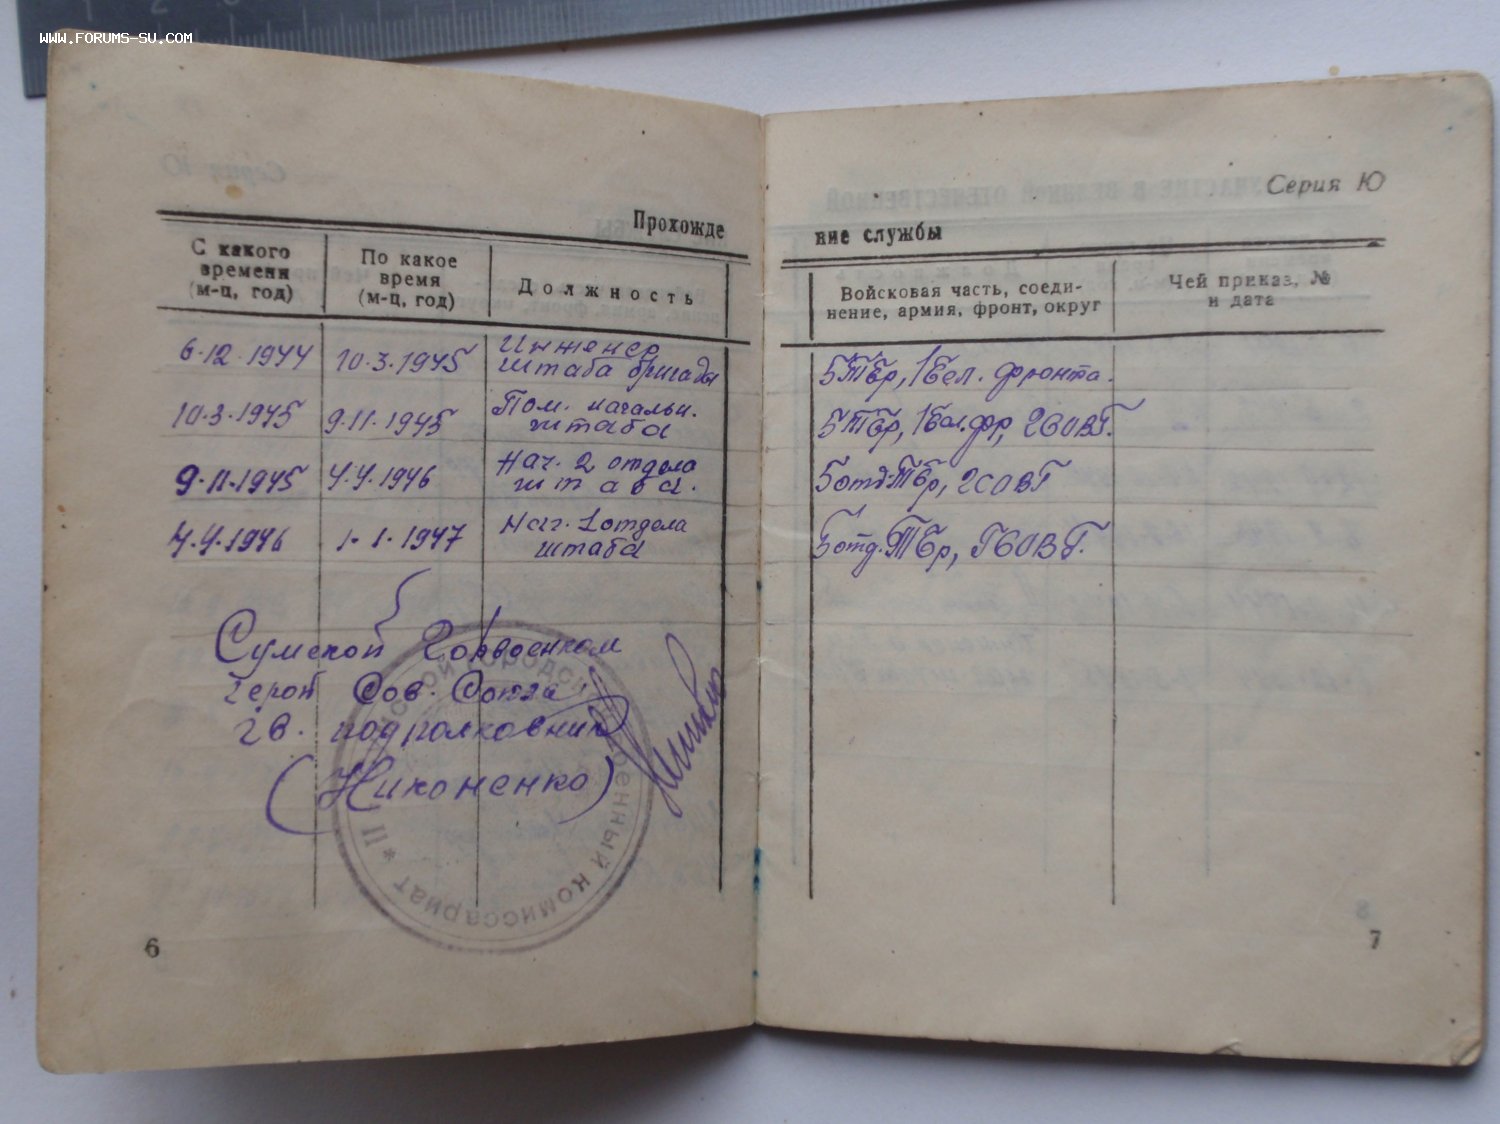 WWW.FORUMS-SU.COM
Серия Ю
Прохожде
ние службы
С какого
времени
(м-ц, год)
По какое
время
(м-ц, год)
Должность
Войсковая часть, соеди-
нение, армия, фронт, округ
Чей приказ, №
и дата
6.12.1944
10.3.1945
Инженер
штаба бригады
5ТБр, 1Бел. фронта.
10.3.1945
9.11.1945
Пом. начальн.
штаба
5ТБр, 1Бел.фр, 2СОВГ.
9.11.1945
4.4.1946
Нач. 2 отдела
штаба.
5отд.ТБр, 2СОВГ
4.4.1946
1.1.1947
Нач. 1 отдела
штаба
5отд.ТБр, ГСОВГ.
Сумской Горвоенком
Герой Сов. Союза
гв. подполковник
(Никоненко)
СКОЙ ГОРОДСКОЙ ВОЕННЫЙ КОМИССАРИАТ * II
6
7